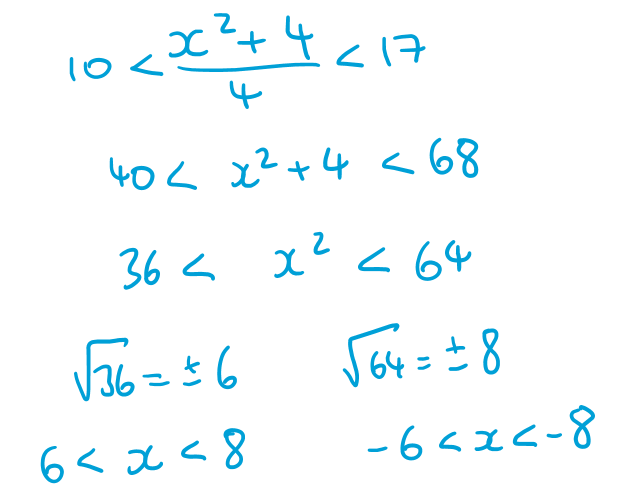 10 < (x² + 4)/4 < 17
40 < x² + 4 < 68
36 < x² < 64
√36 = ± 6 √64 = ± 8
6 < x < 8 -6 < x < -8